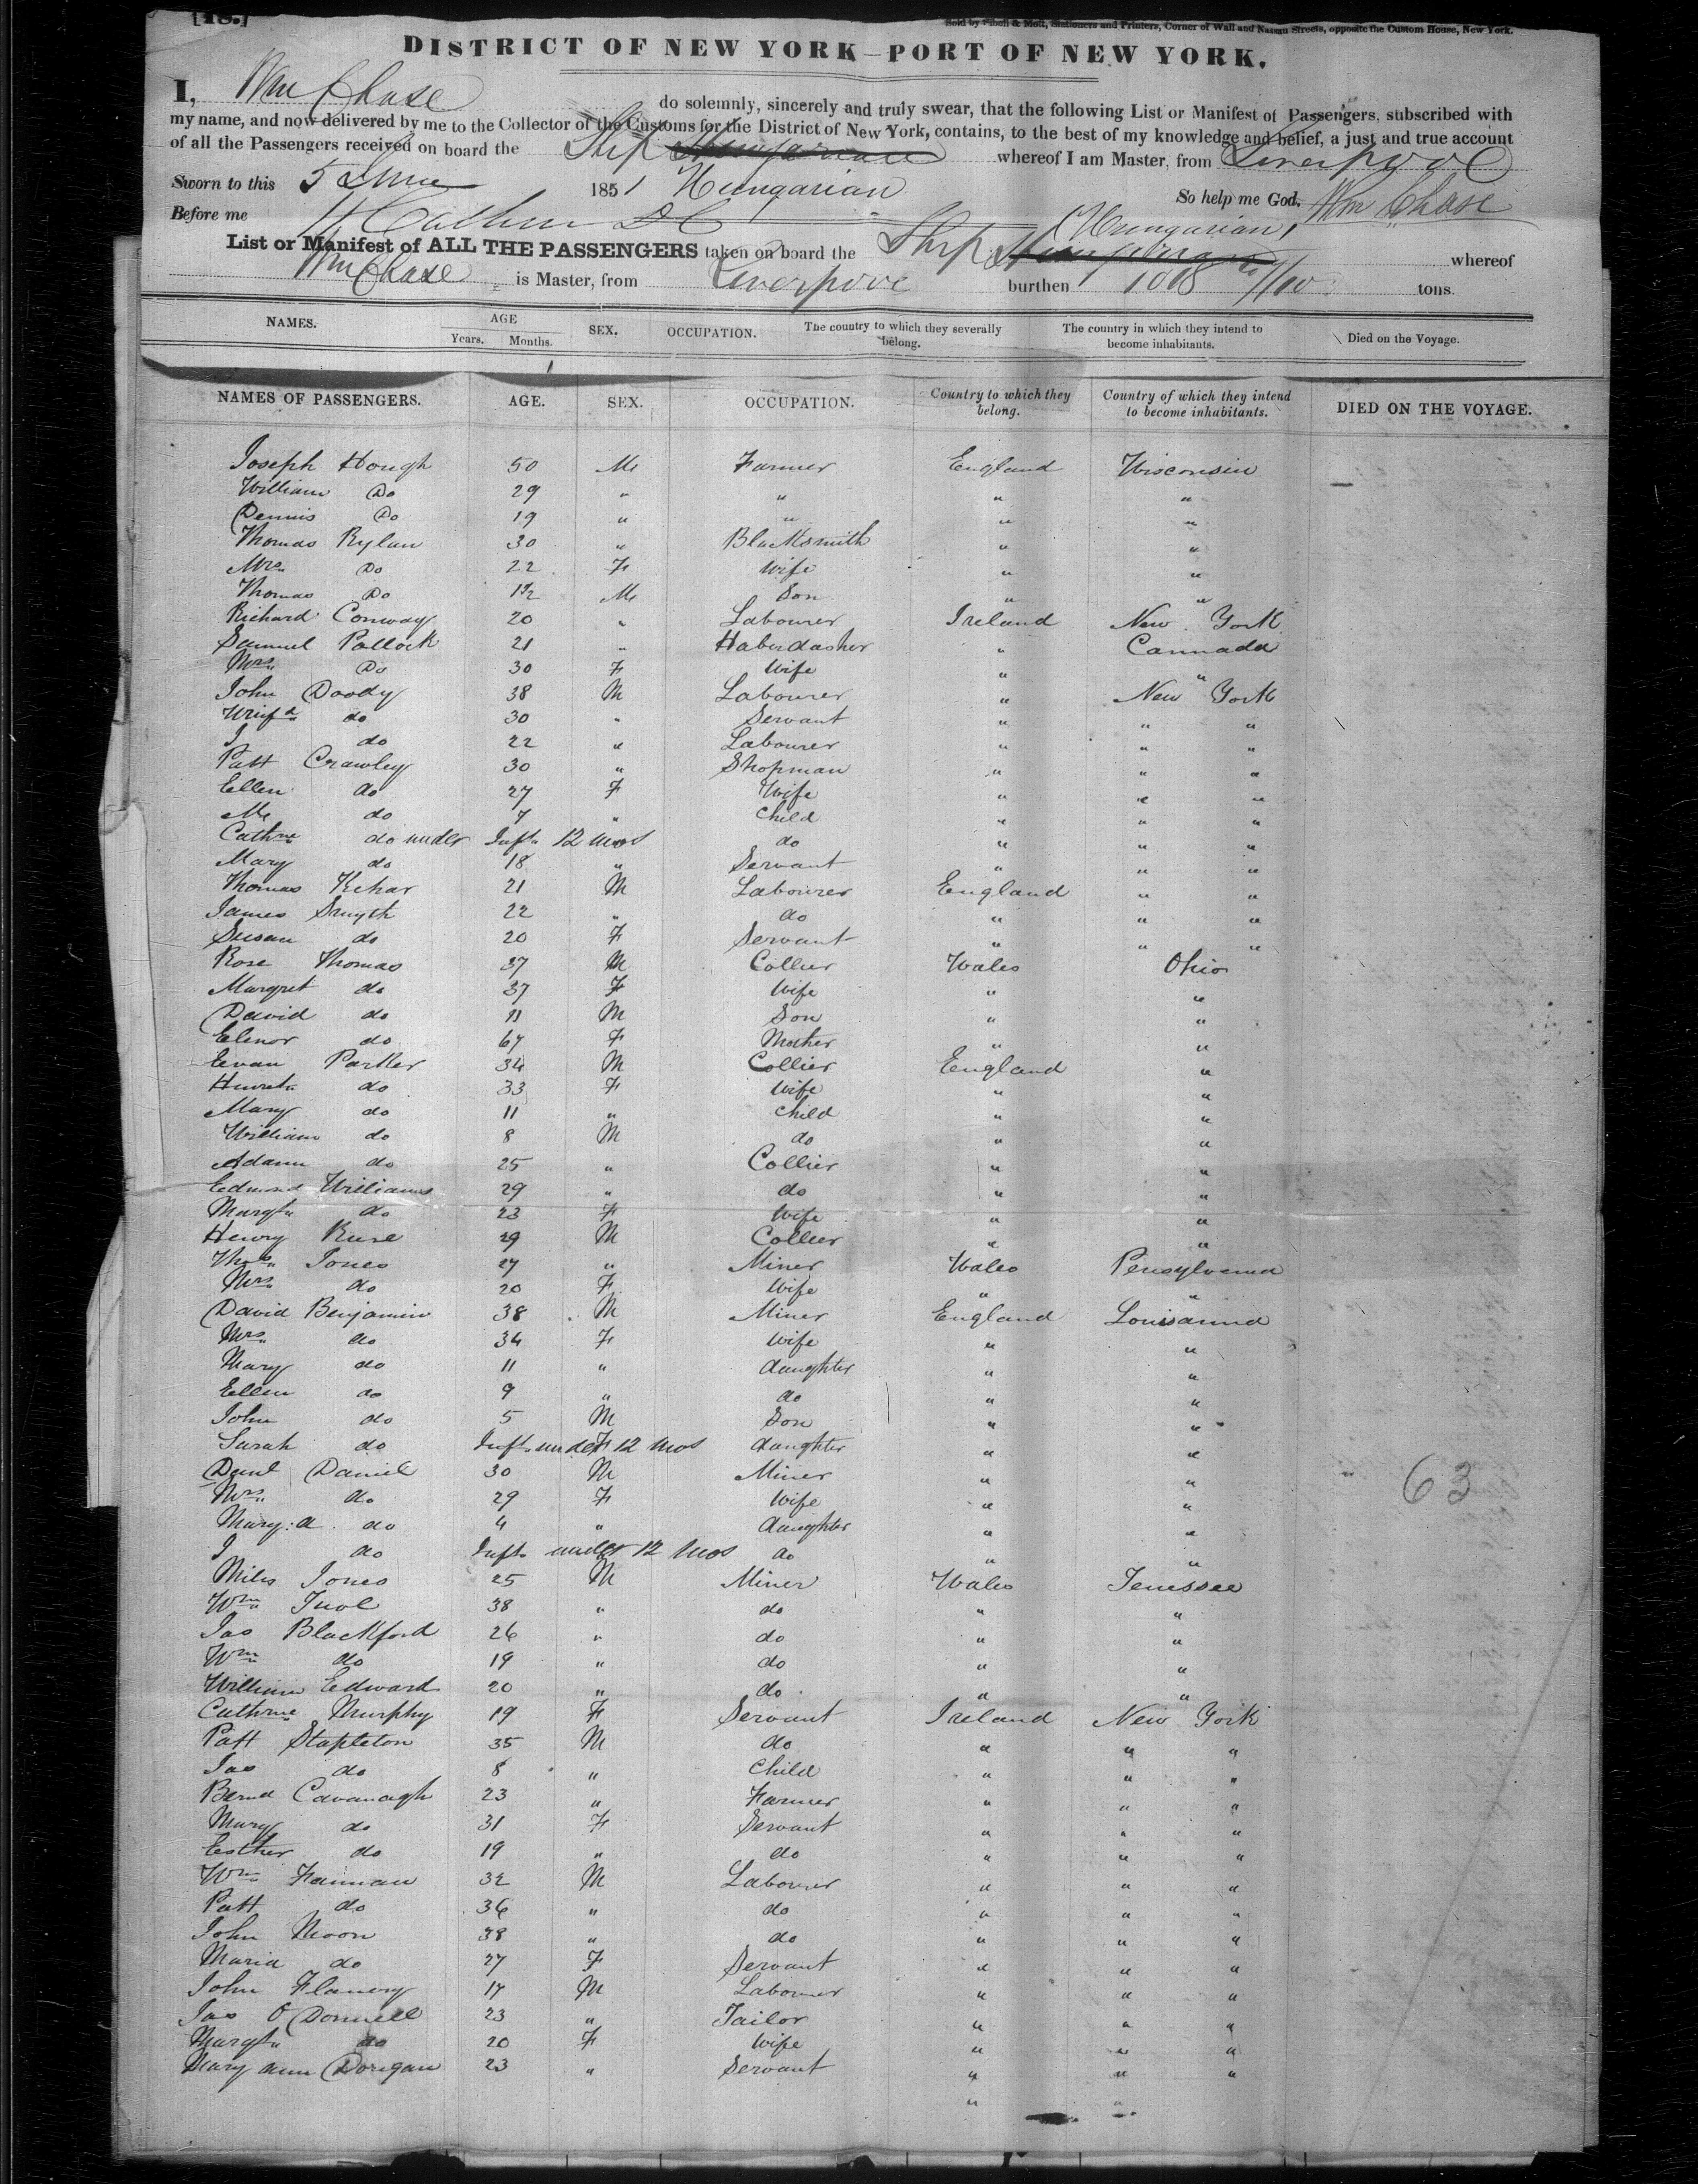 [18.]
Sold by Sibell & Mott, Stationers and Printers, Corner of Wall and Nassau Streets, opposite the Custom House, New York.
DISTRICT OF NEW YORK—PORT OF NEW YORK.
I, Wm Chase do solemnly, sincerely and truly swear, that the following List or Manifest of Passengers, subscribed with
my name, and now delivered by me to the Collector of the Customs for the District of New York, contains, to the best of my knowledge and belief, a just and true account
of all the Passengers received on board the Ship whereof I am Master, from Liverpool
Sworn to this 5 June 1851 Hungarian So help me God, Wm Chase
Before me
List or Manifest of ALL THE PASSENGERS taken on board the Ship Hungarian, whereof
Wm Chase is Master, from Liverpool burthen tons.
NAMES. AGE Years. Months. SEX. OCCUPATION. The country to which they severally belong. The country in which they intend to become inhabitants. Died on the Voyage.
NAMES OF PASSENGERS. AGE. SEX. OCCUPATION. Country to which they belong. Country of which they intend to become inhabitants. DIED ON THE VOYAGE.
Joseph Hough 50 M Farmer England Wisconsin
William Do 29 " " " "
Dennis Do 19 " " " "
Thomas Rylan 30 " Blacksmith " "
Mrs Do 22 F Wife " "
Thomas Do 1½ M Son " "
Richard Conway 20 " Labourer Ireland New York
Samuel Pollock 21 " Haberdasher " Cannada
Mrs Do 30 F Wife " "
John Doody 38 M Labourer " New York
do 30 " Servant " " "
J do 22 " Labourer " " "
Patt Crawley 30 " Shopman " " "
Ellen do 27 F Wife " " "
M do 7 " Child " " "
Cathne do under Inft 12 mos do " " "
Mary do 18 " Servant " " "
Thomas Kehar 21 M Labourer England " "
James Smyth 22 " do " " "
Susan do 20 F Servant " " "
Rose Thomas 37 M Collier Wales Ohio
Margret do 37 F Wife " "
David do 11 M Son " "
Elenor do 67 F Mother " "
Evan Parker 34 M Collier England "
do 33 F Wife " "
Mary do 11 " Child " "
William do 8 M do " "
Adam do 25 " Collier " "
Edmond Williams 29 " do " "
Margt do 23 F Wife " "
Henry 29 M Collier " "
Thos Jones 27 " Miner Wales Pensylvania
Mrs do 20 F Wife " "
David Benjamin 38 M Miner England Louisanna
Mrs do 34 F Wife " "
Mary do 11 " daughter " "
Ellen do 9 " do " "
John do 5 M Son " "
Sarah do Inft under 12 mos F daughter " "
Danl Daniel 30 M Miner " " 63
Mrs do 29 F Wife " "
Mary: a do 4 " daughter " "
J do Inft under 12 mos do " "
Miles Jones 25 M Miner Wales Tenessee
Wm 38 " do " "
Jas Blackford 26 " do " "
Wm do 19 " do " "
William Edward 20 " do " "
Cathrne Murphy 19 F Servant Ireland New York
Patt Stapleton 35 M do " " "
Jas do 8 " Child " " "
Bernd Cavanagh 23 " Farmer " " "
Mary do 31 F Servant " " "
Esther do 19 " do " " "
Wm 32 M Labourer " " "
Patt do 36 " do " " "
John Moon 38 " do " " "
Maria do 27 F Servant " " "
John Flanery 17 M Labourer " " "
Jas O'Donnell 23 " Tailor " " "
Margt do 20 F Wife " " "
Mary ann Dorigan 23 " Servant " " "
" "